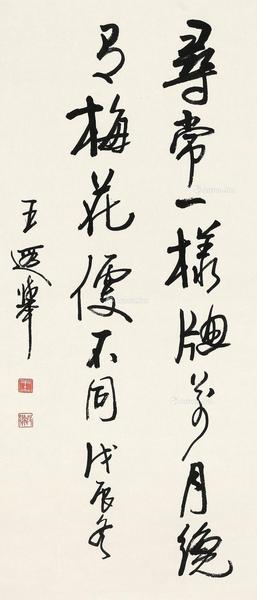 尋常一樣牕前月纔
有梅花便不同戊辰冬
王遐舉